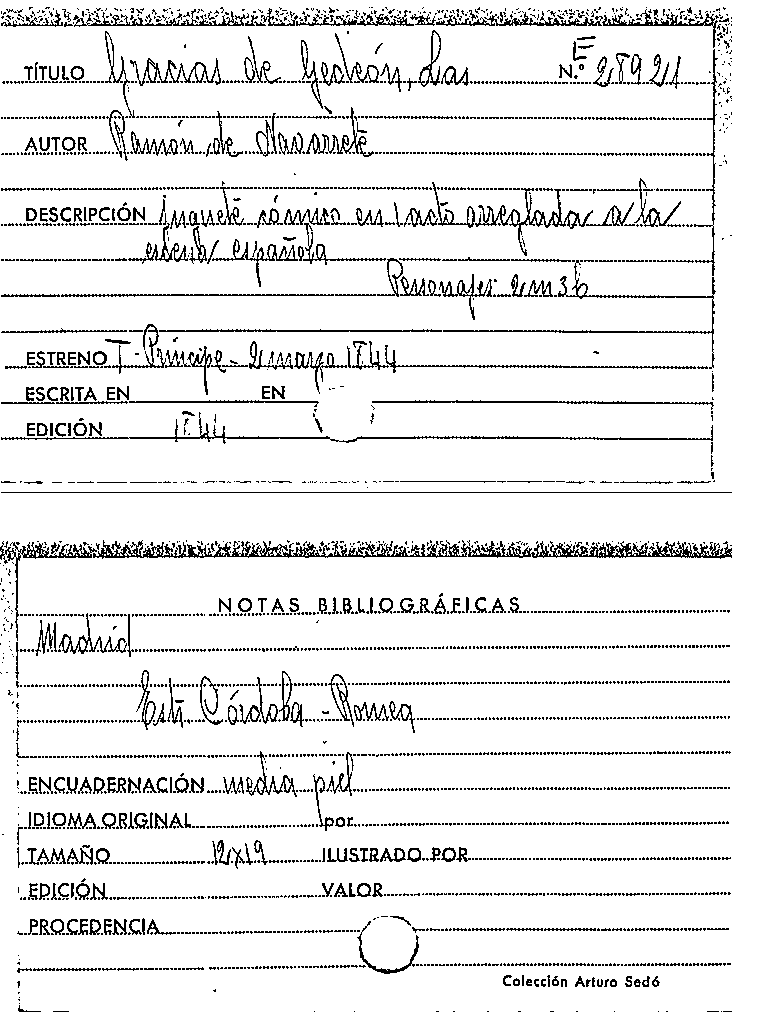 TÍTULO Gracias de Gedeón, Las N.º E 28921
AUTOR Ramón de Navarrete
DESCRIPCIÓN juguete cómico en 1 acto arreglada a la
escena española
Personajes 2 m 3 h
ESTRENO T. Príncipe - 2 marzo 1844
ESCRITA EN EN
EDICIÓN 1844
NOTAS BIBLIOGRÁFICAS
Madrid
Estr. Córdoba - Romea
ENCUADERNACIÓN media piel
IDIOMA ORIGINAL por
TAMAÑO 12x19 ILUSTRADO POR
EDICIÓN VALOR
PROCEDENCIA
Colección Arturo Sedó